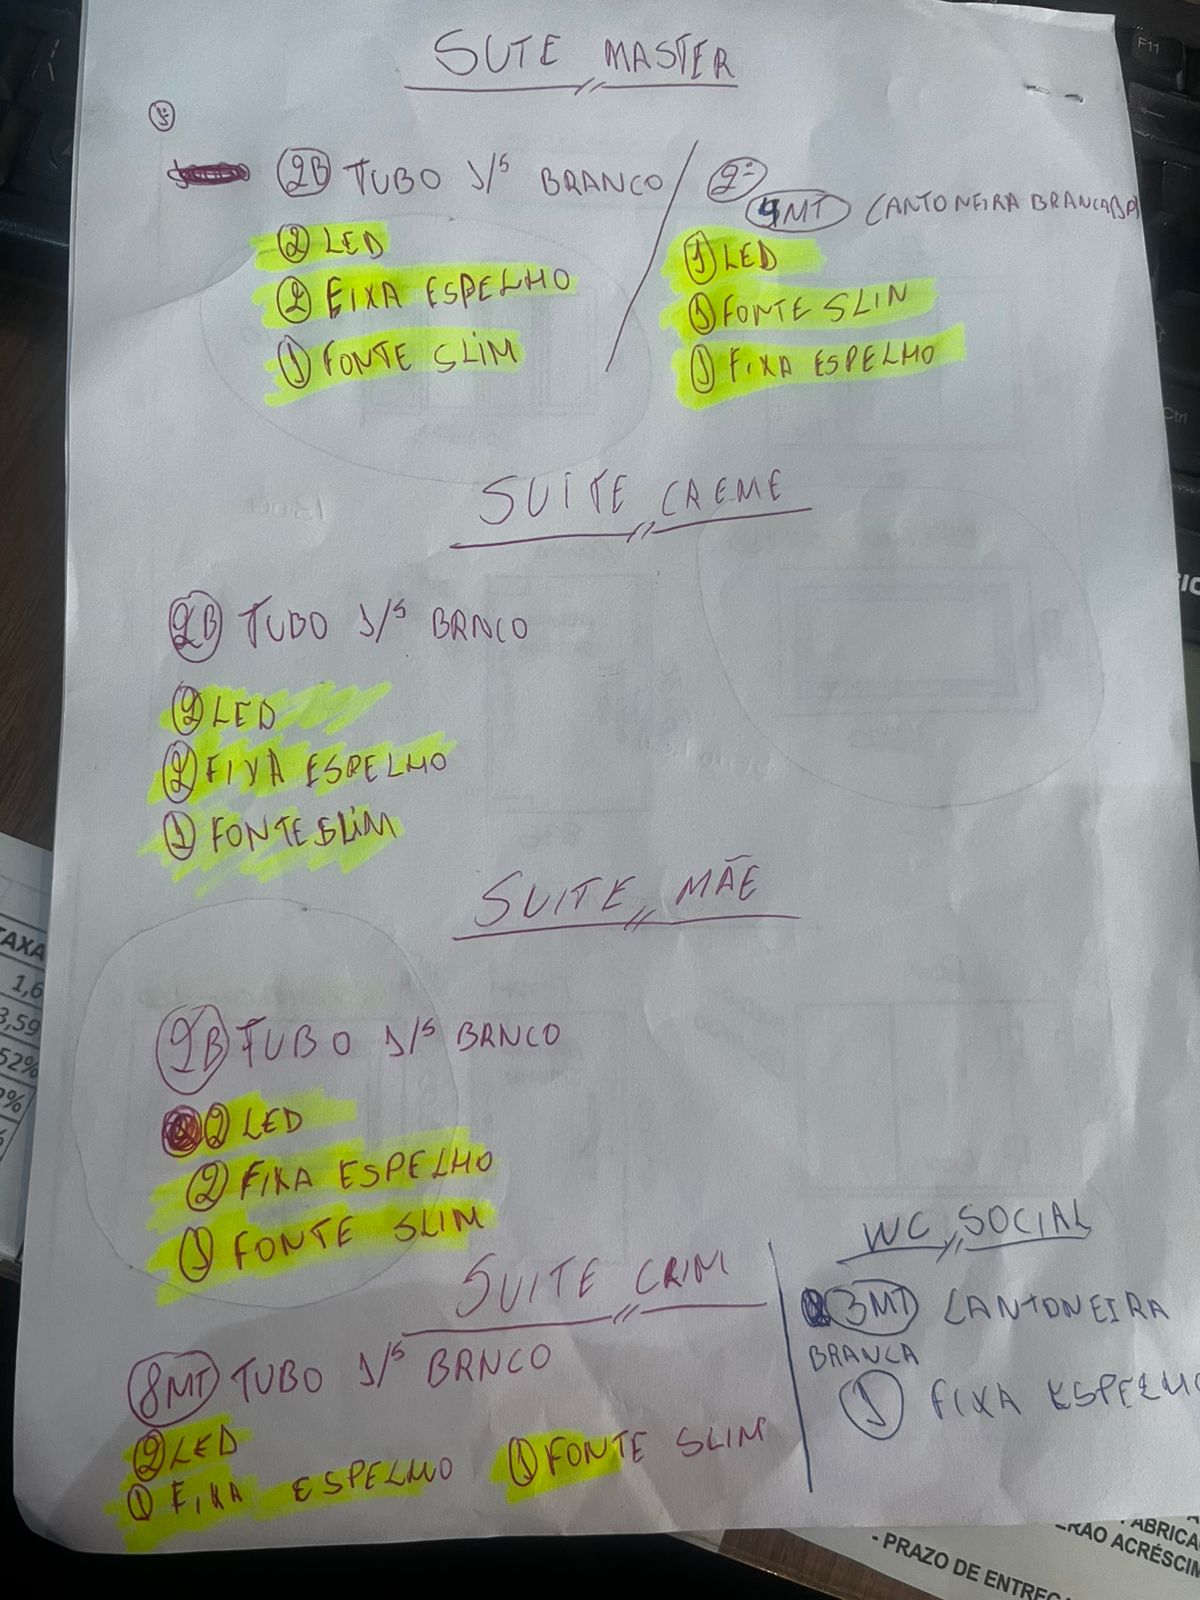 SUTE MASTER
2B TUBO 1/5 BRANCO
2 LED
2 FIXA ESPELHO
1 FONTE SLIM
2º
4MT CANTONEIRA BRANCA
1 LED
1 FONTE SLIN
1 FIXA ESPELHO
SUITE CREME
2B TUBO 1/5 BRNCO
2 LED
2 FIXA ESPELHO
1 FONTE SLIM
SUITE MÃE
2B TUBO 1/5 BRNCO
2 LED
2 FIXA ESPELHO
1 FONTE SLIM
SUITE CRIM
8MT TUBO 1/5 BRNCO
2 LED
1 FIXA ESPELHO 1 FONTE SLIM
WC SOCIAL
3MT CANTONEIRA
BRANCA
1 FIXA ESPELHO
TAXA
1,6
3,59
52%
F11
Ctrl
- PRAZO DE ENTREGA